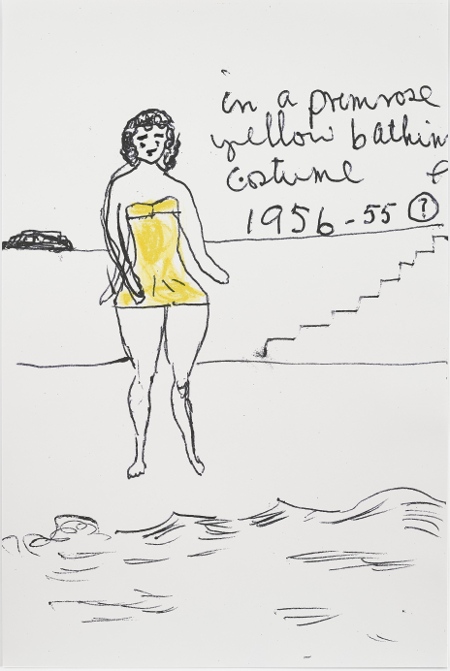 in a primrose
yellow bathin
costume &
1956-55 ?